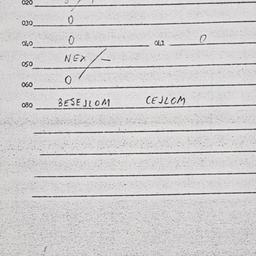 020
030 0
040 0 042 0
050 NEX/-
060 0
080 BESEJLOM CEJLOM